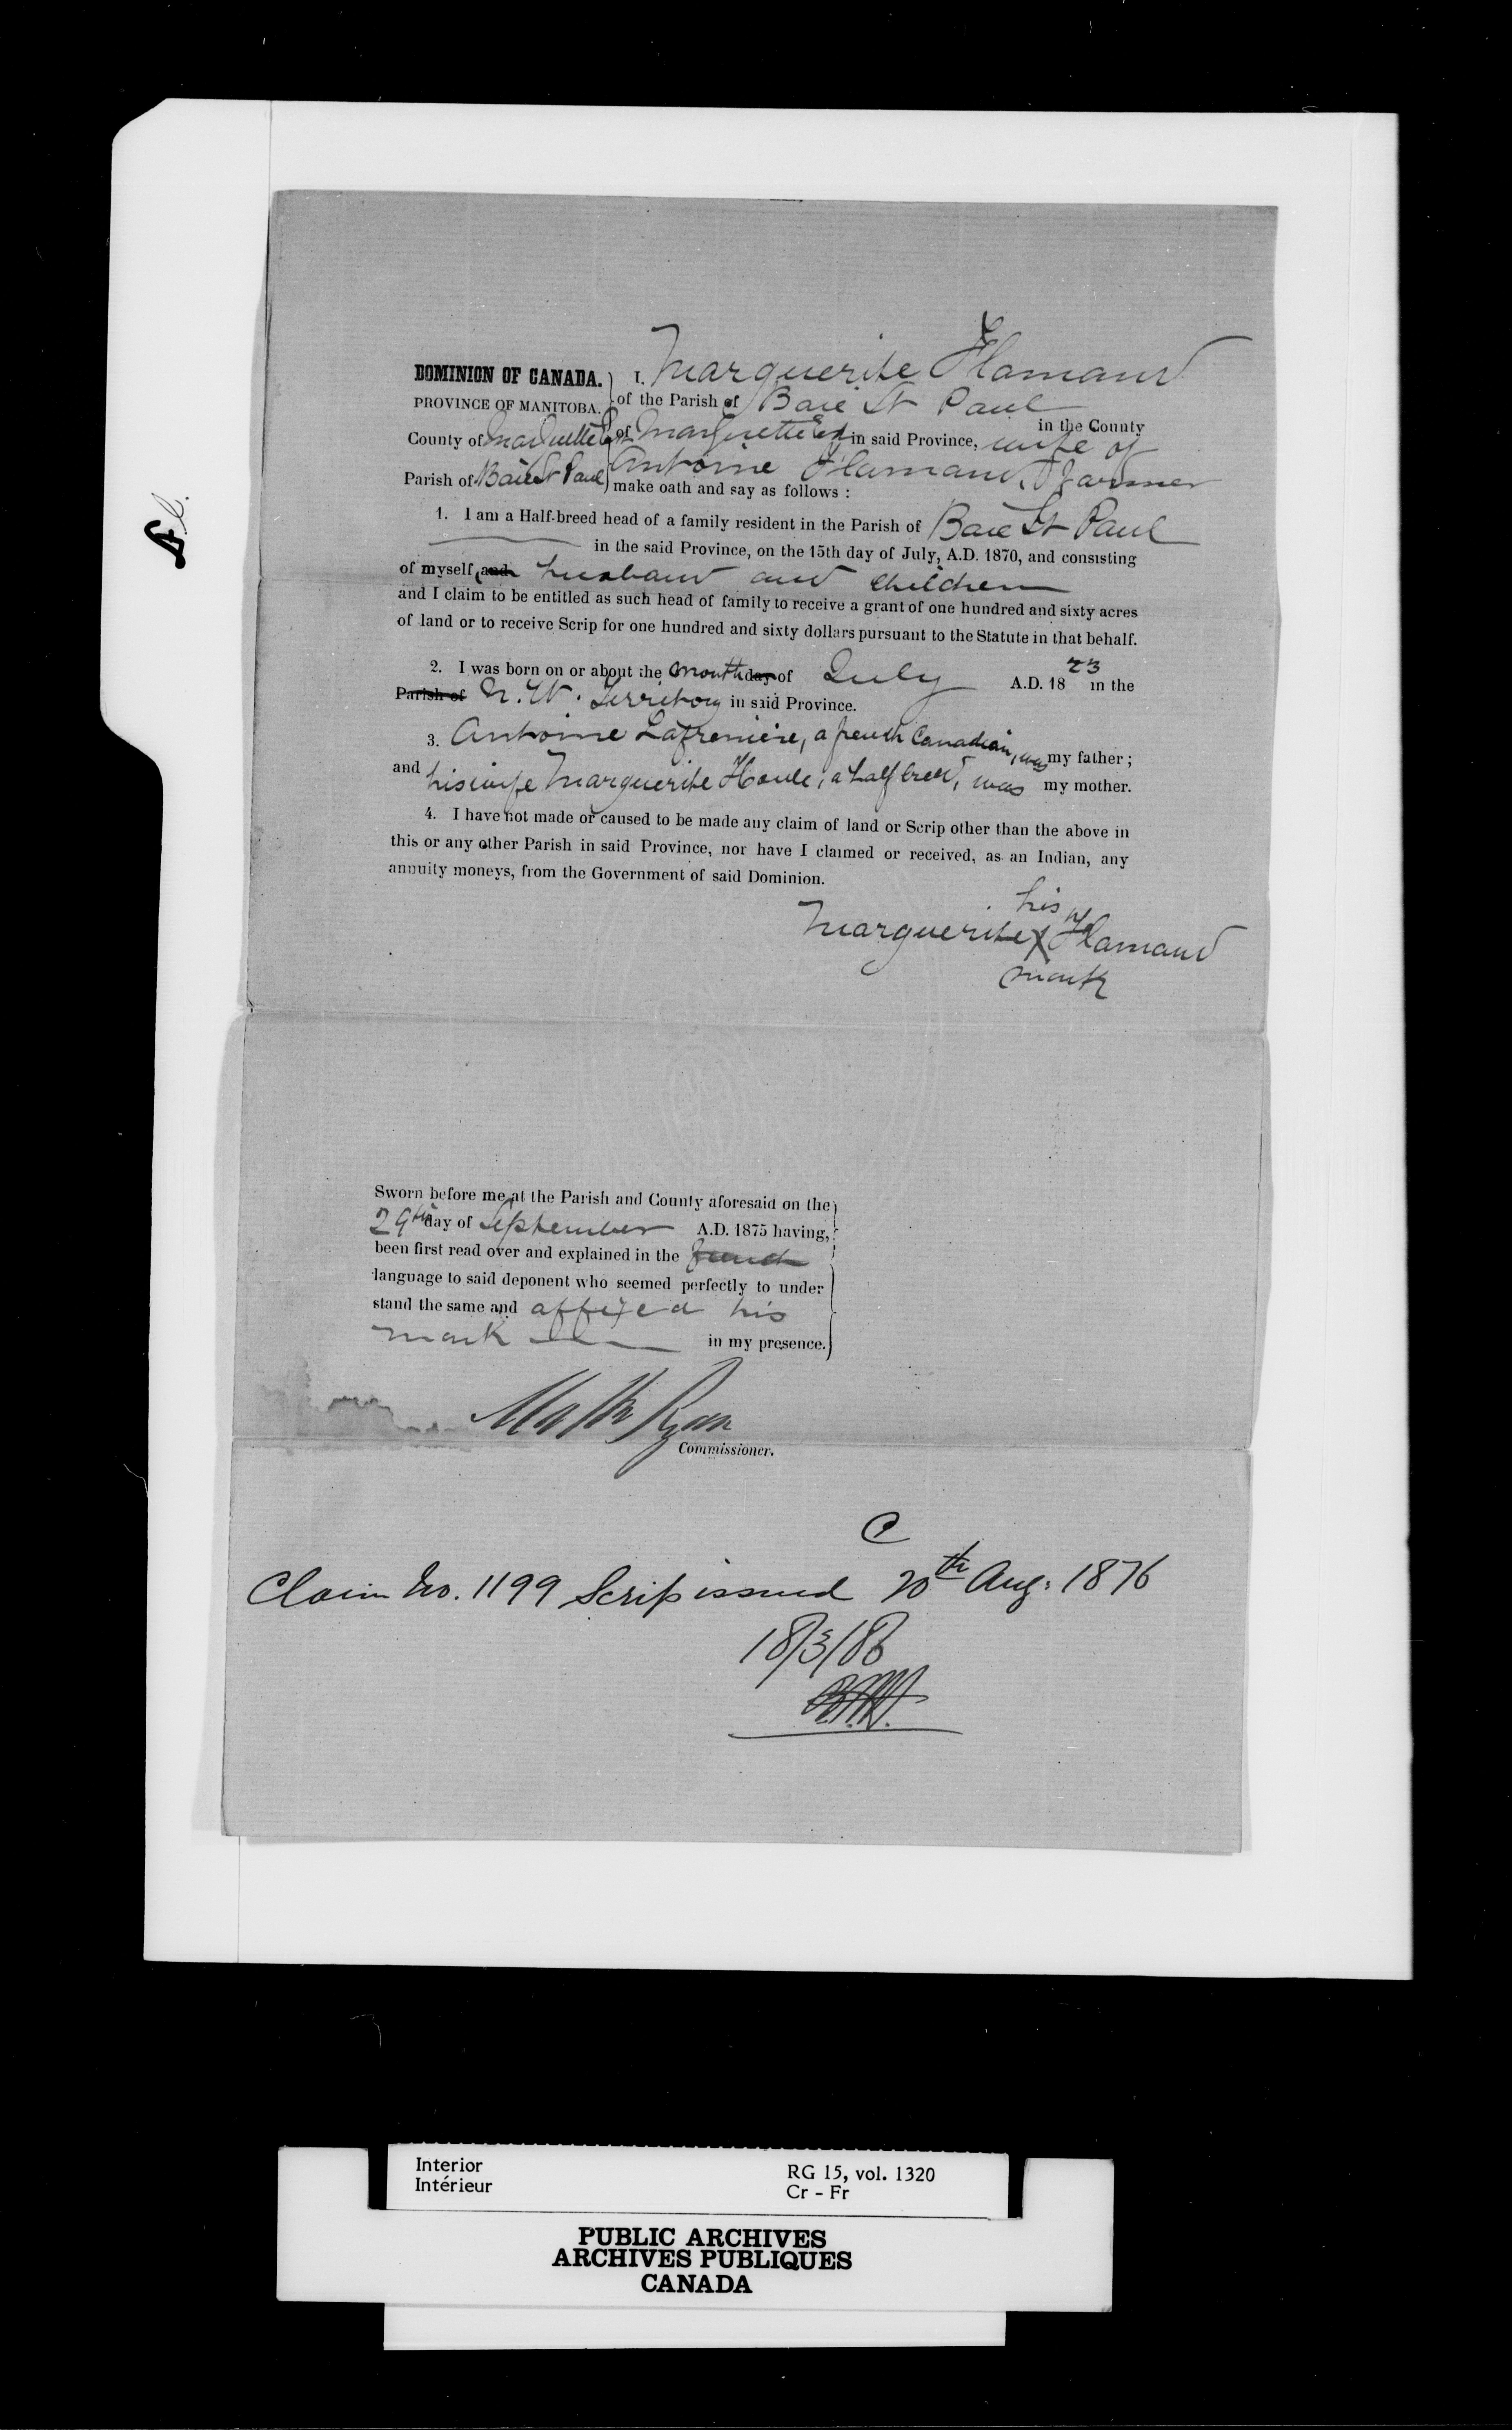 DOMINION OF CANADA.
PROVINCE OF MANITOBA.
County of Marquette E
Parish of Baie St Paul
I, Marguerite Flamand
of the Parish of Baie St Paul in the County
of Marquette Est in said Province, wife of
Antoine Flamand, Farmer
make oath and say as follows :
1. I am a Half-breed head of a family resident in the Parish of Baie St Paul
in the said Province, on the 15th day of July, A.D. 1870, and consisting
of myself, and husband and children
and I claim to be entitled as such head of family to receive a grant of one hundred and sixty acres
of land or to receive Scrip for one hundred and sixty dollars pursuant to the Statute in that behalf.
2. I was born on or about the month day of July A.D. 1823 in the
Parish of N. W. Territory in said Province.
3. Antoine Lafreniere, a french Canadian, was my father ;
and his wife Marguerite Houle, a half breed, was my mother.
4. I have not made or caused to be made any claim of land or Scrip other than the above in
this or any other Parish in said Province, nor have I claimed or received, as an Indian, any
annuity moneys, from the Government of said Dominion.
his
Marguerite X Flamand
mark
Sworn before me at the Parish and County aforesaid on the
29th day of September A.D. 1875 having,
been first read over and explained in the french
language to said deponent who seemed perfectly to under
stand the same and affixed his
mark in my presence.
Math Ryan
Commissioner.
C
Claim No. 1199 Scrip issued 20th Aug: 1876
18/3/86
Interior
Intérieur
RG 15, vol. 1320
Cr - Fr
PUBLIC ARCHIVES
ARCHIVES PUBLIQUES
CANADA